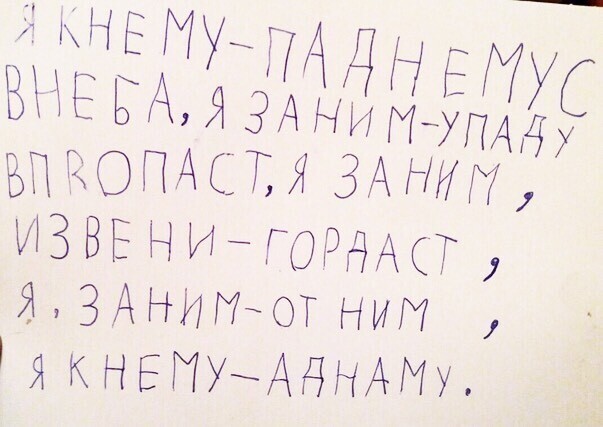 Я КНЕМУ-ПАДНЕМУС
ВНЕБА, Я ЗАНИМ-УПАДУ
ВПRОПАСТ, Я ЗАНИМ,
ИЗВЕНИ-ГОРДАСТ,
Я, ЗАНИМ-ОТ НИМ,
Я КНЕМУ-АДНАМУ.